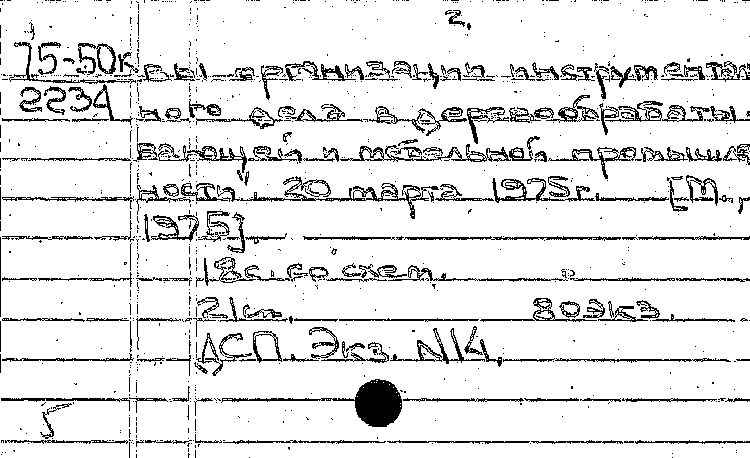 2.
75-50к вы организации инструменталь
2234 ного дела в деревообрабаты-
вающей и мебельной промышлен
ности". 20 марта 1975г. [М.,
1975].
18с. со схем.
21см. 80экз.
ДСП. Экз. N14.
5